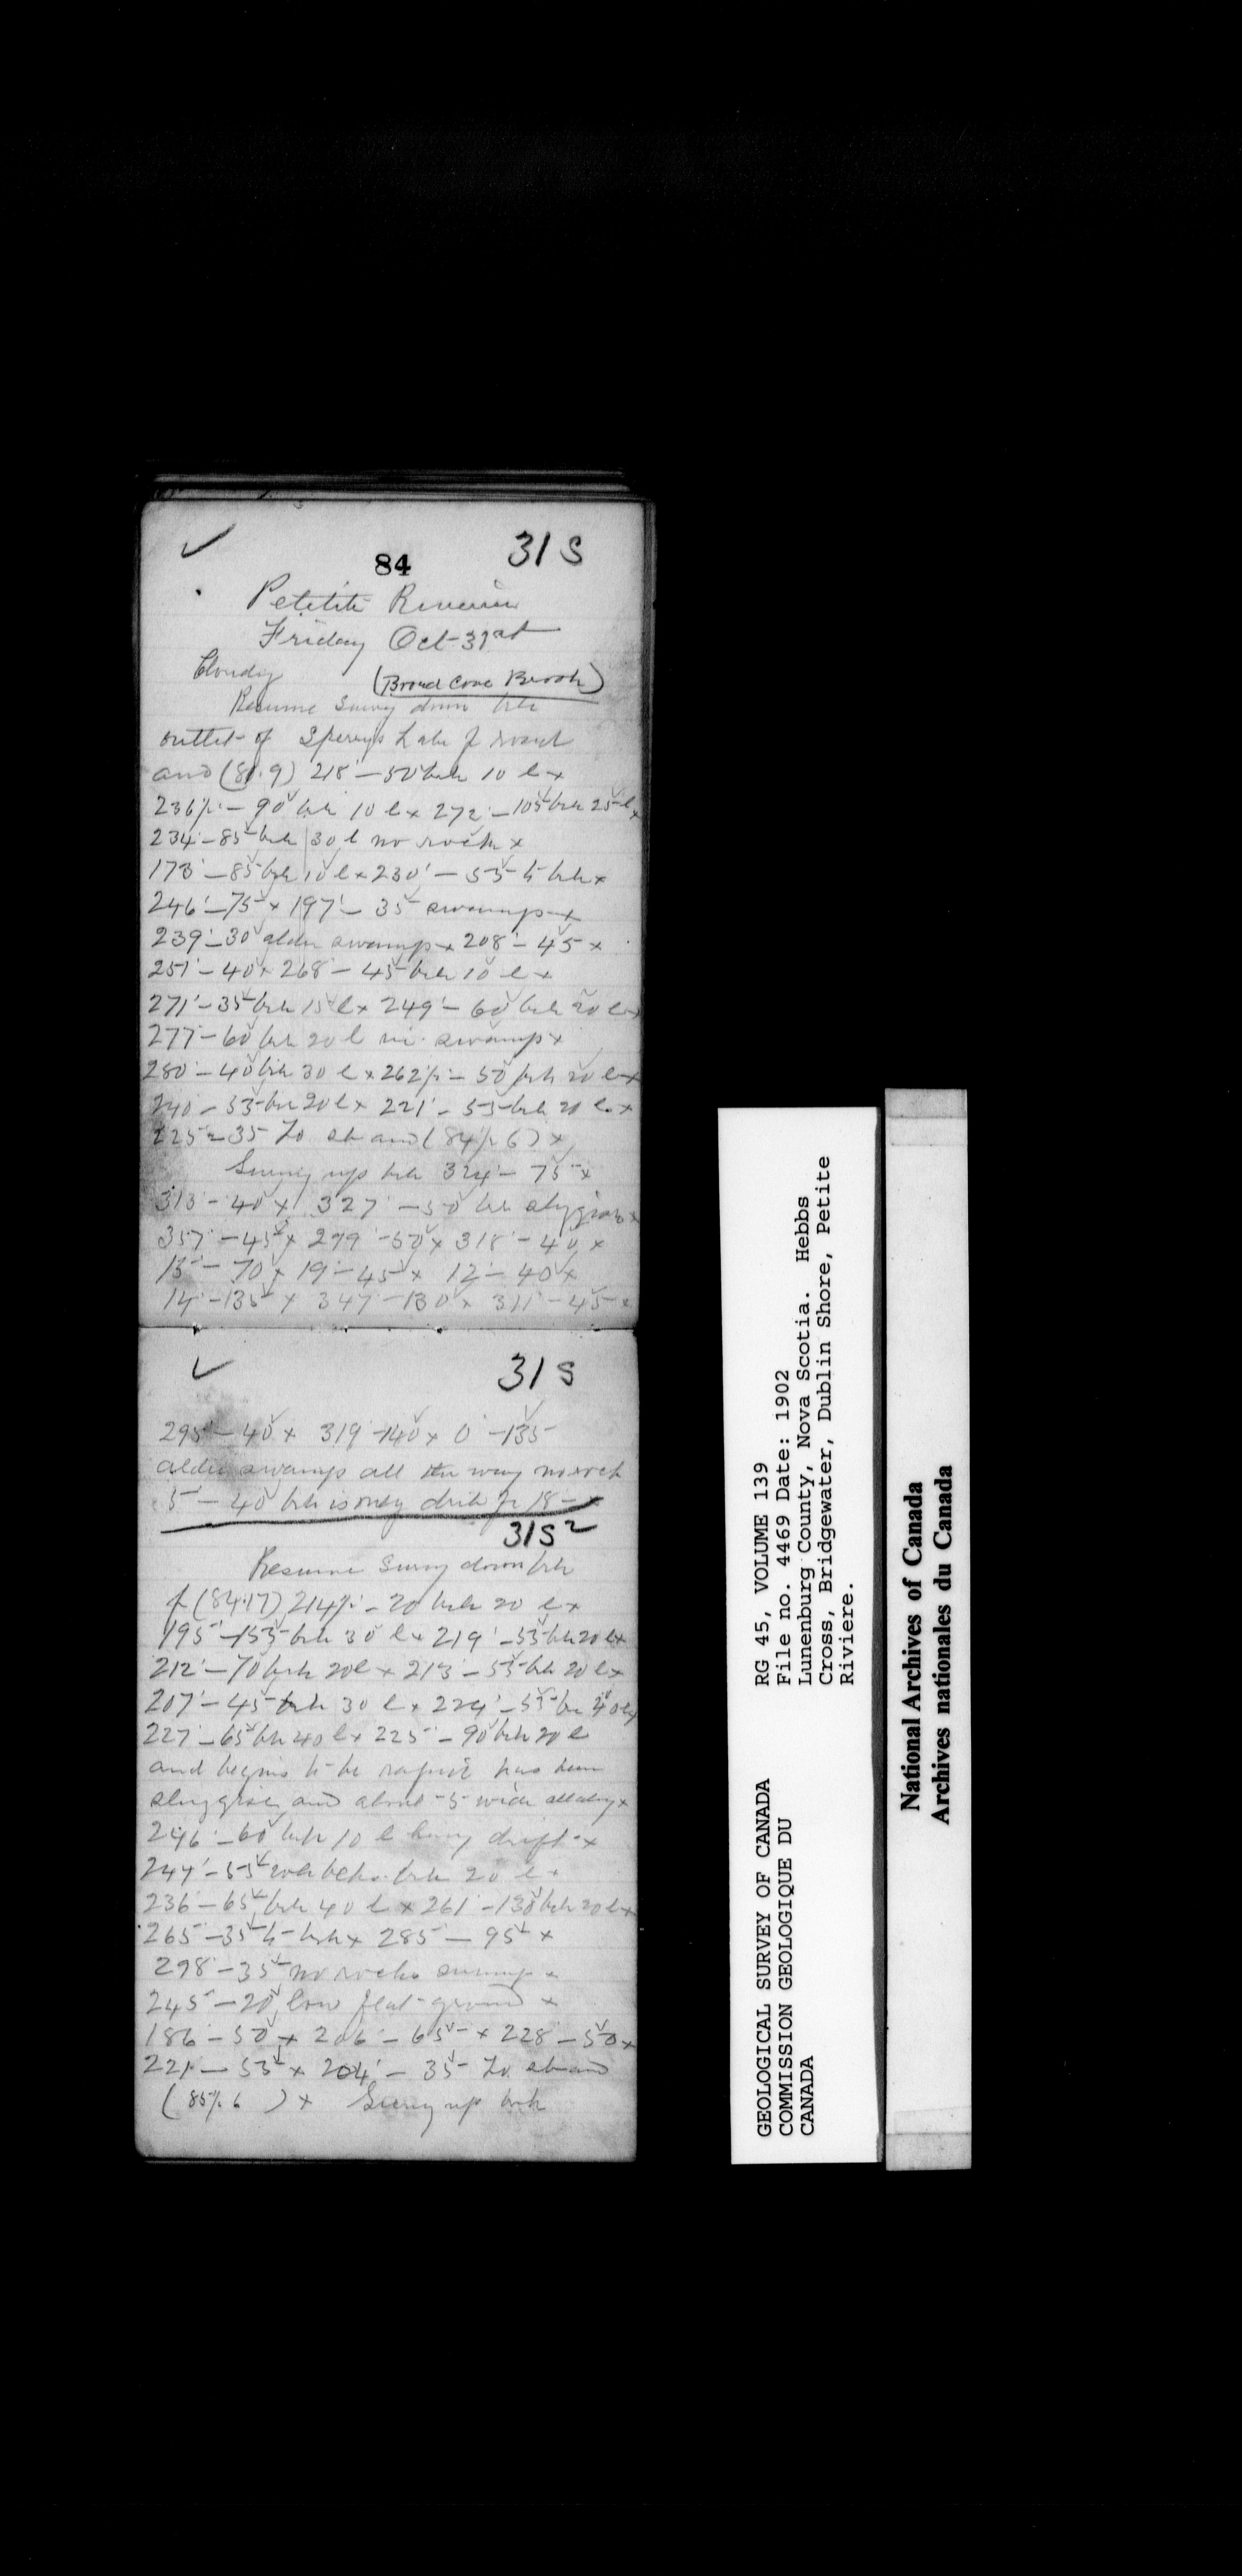 ✓ 84 31 S
Petitite Riviere
Friday Oct 31st
Cloudy (Broad Cove Brook)
Resume Survey down brk
outlet of Sperrys Lake f road
and (81.9) 218' - 50 brk 10 l x
236½ - 90 brk 10 l x 272' - 105 brk 25 l x
234 - 85 brk 30 l no rock x
173' - 85 brk 10 l x 230' - 55 to brk x
246' - 75 x 197' - 35 swamp x
239' - 30 alder swamp x 208' - 45 x
251' - 40 x 268' - 45 brk 10 l x
271' - 35 brk 15 l x 249' - 60 brk 20 l x
277' - 60 brk 20 l in swamp x
280' - 40 brk 30 l x 262½ - 50 brk 20 l x
240' - 55 brk 20 l x 221' - 55 brk 20 l x
225 - 35 to st and (84½ 6) x
Survey up brk 324' - 75 x
313' - 40 x 327' - 50 brk sluggish x
357' - 45 x 299' - 50 x 318' - 40 x
15' - 70 x 19' - 45 x 12' - 40 x
14' - 135 x 347' - 130 x 311' - 45 x
✓ 31 S
295' - 40 x 319' - 140 x 0' - 135
alder swamp all the way no rock
5' - 40 brk is only
31 S 2
Resume Survey down brk
f (84.17) 214½ - 20 brk 20 l x
195' - 155 brk 30 l x 219' - 55 brk 20 l x
212' - 70 brk 20 l x 213' - 55 brk 20 l x
207' - 45 brk 30 l x 224' - 55 brk 40 l x
227' - 65 brk 40 l x 225' - 90 brk 20 l
and begins to be rapid has been
sluggish and about 5 wide all along x
246' - 60 brk 10 l heavy drift x
244' - 55 brk 20 l x
236' - 65 brk 40 l x 261' - 130 brk 20 l x
265' - 35 to brk x 285' - 95 x
298' - 35 no rocks swamp x
245' - 20 low flat ground x
186' - 50 x 206' - 65 x 228' - 50 x
221' - 55 x 204' - 35 to st and
(85½ 6) x Survey up brk
RG 45, VOLUME 139
File no. 4469 Date: 1902
Lunenburg County, Nova Scotia. Hebbs
Cross, Bridgewater, Dublin Shore, Petite
Riviere.
GEOLOGICAL SURVEY OF CANADA
COMMISSION GEOLOGIQUE DU
CANADA
National Archives of Canada
Archives nationales du Canada